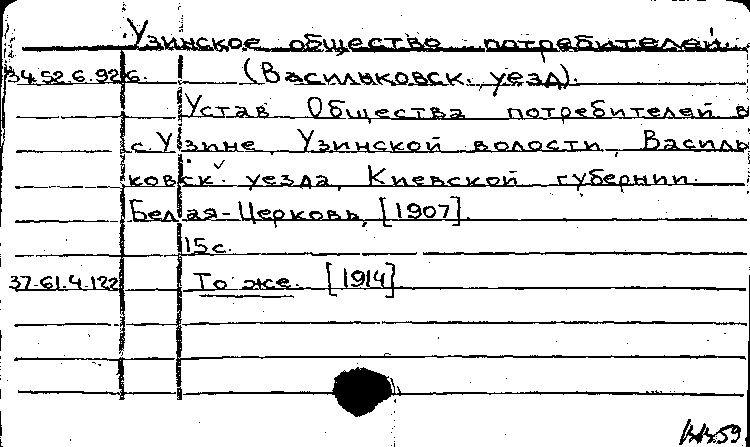 Узинское общество потребителей.
34.52.6.926. (Васильковск. уезд).
Устав Общества потребителей в
с. Узине, Узинской волости, Василь
ковск. уезда, Киевской губернии.
Белая-Церковь, [1907].
15 с.
37-61.4.122 То же. [1914]
59